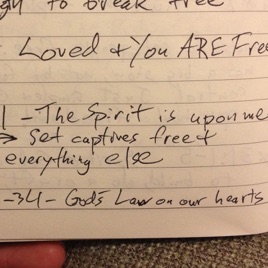 to break free
Loved & You ARE Free
1 - The Spirit is upon me
→ Set captives free &
everything else
-34 - God's Law on our hearts